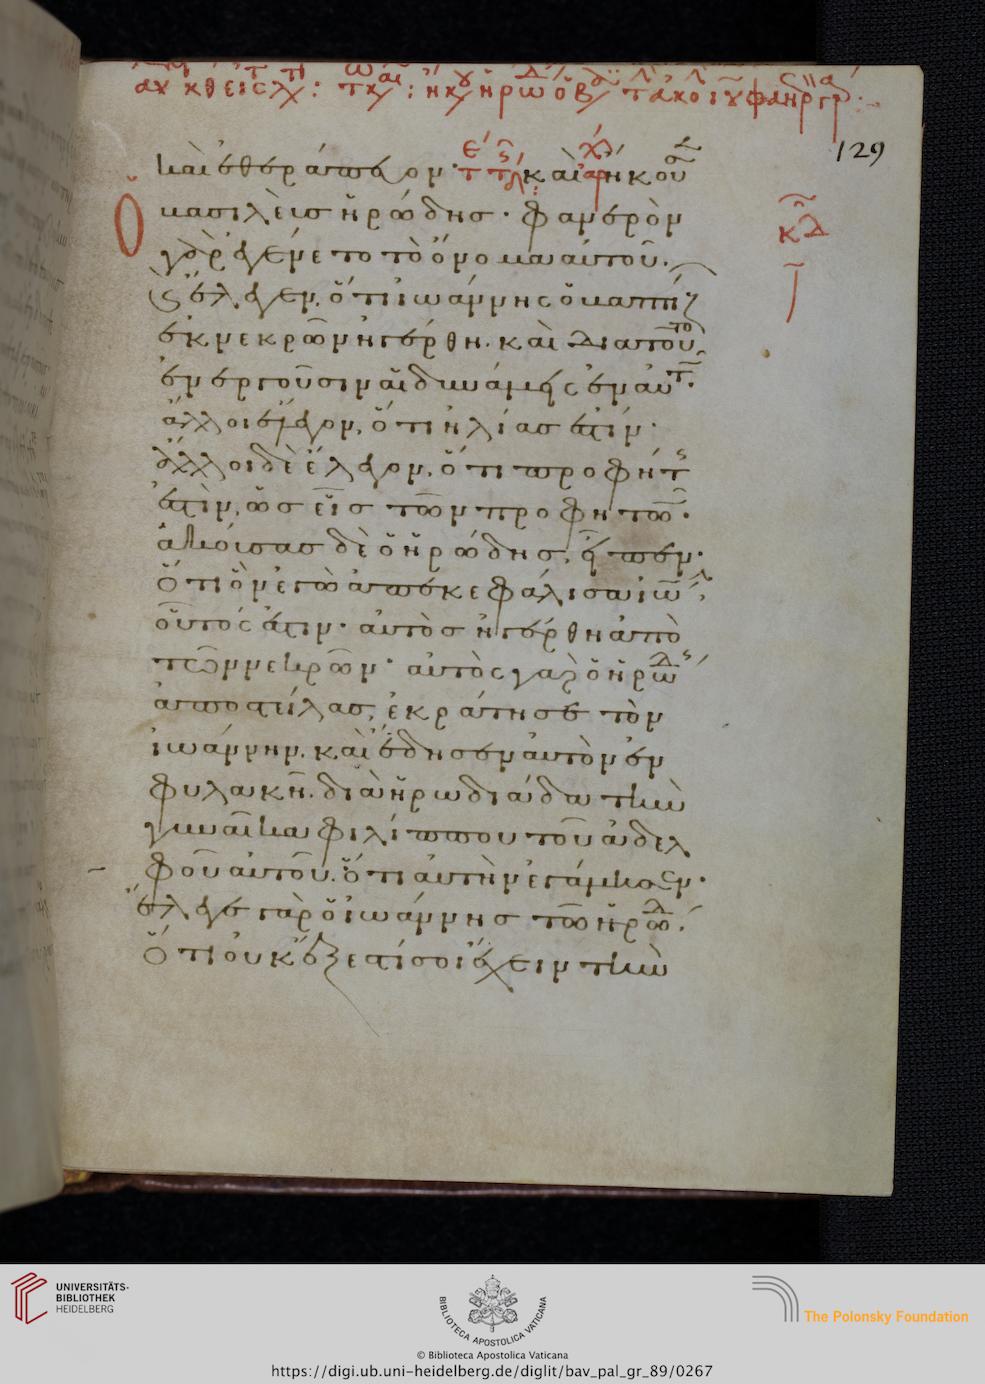 129
καὶ ἐθεράπευον· καὶ ἤκουσεν
ὁ βασιλεὺς ἡρώδης· φανερὸν
γὰρ ἐγένετο τὸ ὄνομα αὐτοῦ.
καὶ ἔλεγεν, ὅτι ἰωάννης ὁ βαπτίζων
ἐκ νεκρῶν ἠγέρθη. καὶ διατοῦτο
ἐνεργοῦσιν αἱ δυνάμεις ἐν αὐτῷ.
ἄλλοι ἔλεγον, ὅτι ἡλίας ἐστίν·
ἄλλοι δὲ ἔλεγον, ὅτι προφήτης
ἐστὶν, ὡς εἷς τῶν προφητῶν.
ἀκούσας δὲ ὁ ἡρώδης, εἶπεν·
ὅτι ὃν ἐγὼ ἀπεκεφάλισα ἰωάννην,
οὗτός ἐστιν· αὐτὸς ἠγέρθη ἀπὸ
τῶν νεκρῶν· αὐτὸς γὰρ ὁ ἡρώδης
ἀποστείλας, ἐκράτησε τὸν
ἰωάννην, καὶ ἔδησεν αὐτὸν ἐν
φυλακῇ. διὰ ἡρωδιάδα τὴν
γυναῖκα φιλίππου τοῦ ἀδελ
φοῦ αὐτοῦ. ὅτι αὐτὴν ἐγάμησεν·
ἔλεγε γὰρ ὁ ἰωάννης τῷ ἡρώδῃ,
ὅτι οὐκ ἔξεστί σοι ἔχειν τὴν
UNIVERSITÄTS-
BIBLIOTHEK
HEIDELBERG
BIBLIOTECA APOSTOLICA VATICANA
The Polonsky Foundation
© Biblioteca Apostolica Vaticana
https://digi.ub.uni-heidelberg.de/diglit/bav_pal_gr_89/0267